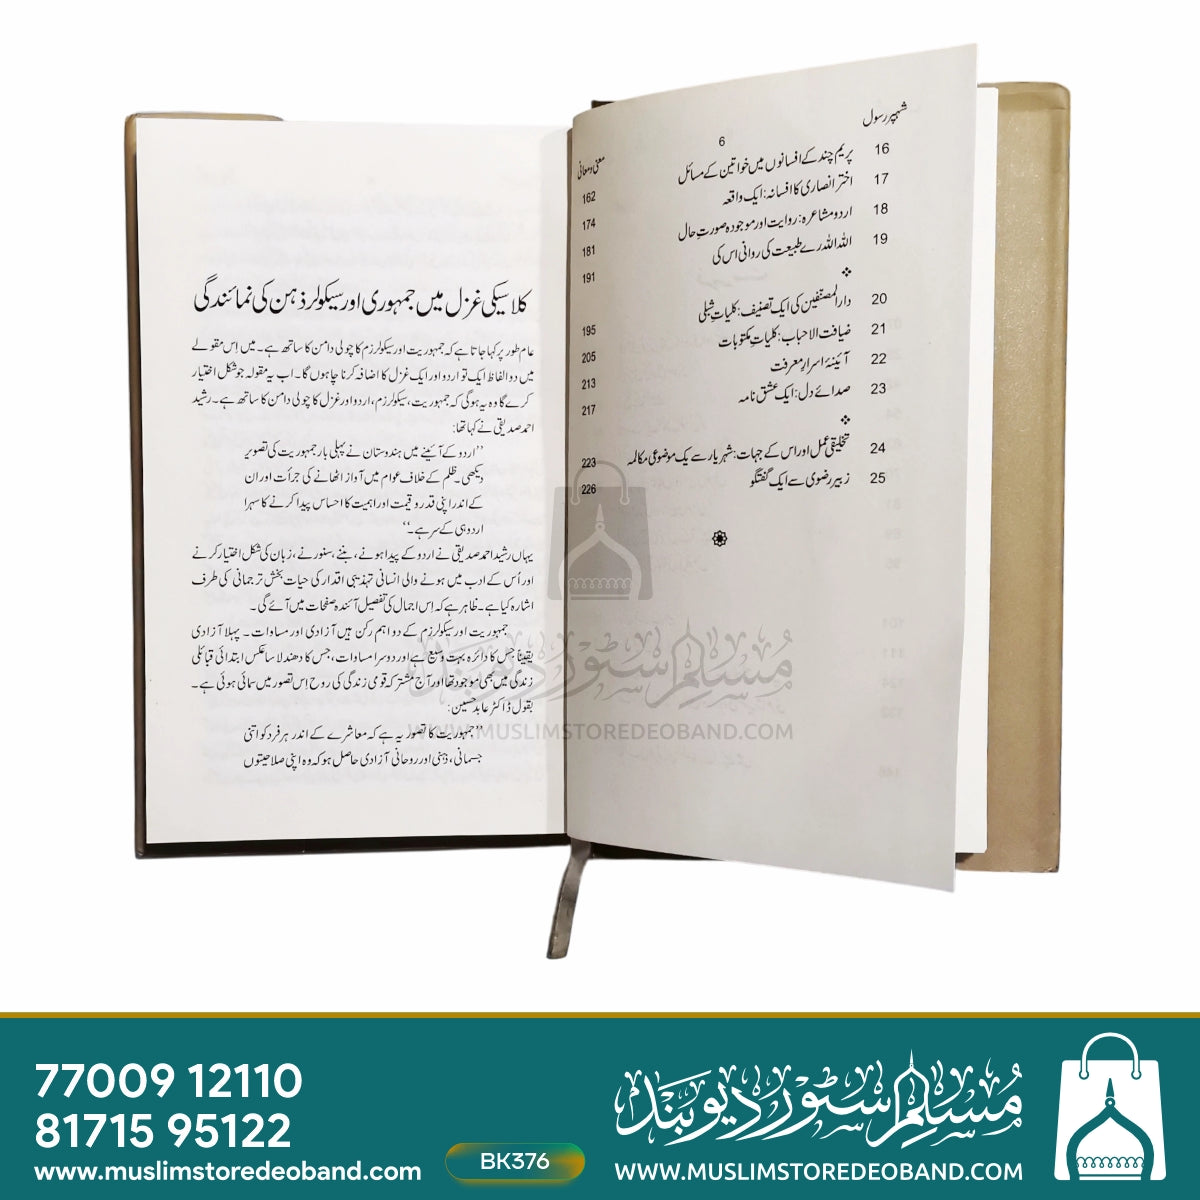 شہپر رسول
6
معنی و معانی
16 پریم چند کے افسانوں میں خواتین کے مسائل 162
17 اختر انصاری کا افسانہ: ایک واقعہ 174
18 اردو مشاعرہ: روایت اور موجودہ صورتِ حال 181
19 اللہ اللہ رے طبیعت کی روانی اس کی 191
20 دارالمصنفین کی ایک تصنیف: کلیاتِ شبلی 195
21 ضیافت الاحباب: کلیاتِ مکتوبات 205
22 آئینۂ اسرارِ معرفت 213
23 صدائے دل: ایک عشق نامہ 217
24 تخلیقی عمل اور اس کے جہات: شہریار سے یک موضوعی مکالمہ 223
25 زبیر رضوی سے ایک گفتگو 226
کلاسیکی غزل میں جمہوری اور سیکولر ذہن کی نمائندگی
عام طور پر کہا جاتا ہے کہ جمہوریت اور سیکولرزم کا چولی دامن کا ساتھ ہے۔ میں اِس مقولے
میں دو الفاظ ایک تو اردو اور ایک غزل کا اضافہ کرنا چاہوں گا۔ اب یہ مقولہ جو شکل اختیار
کرے گا وہ یہ ہوگی کہ جمہوریت، سیکولرزم، اردو اور غزل کا چولی دامن کا ساتھ ہے۔ رشید
احمد صدیقی نے کہا تھا:
’’اردو کے آئینے میں ہندوستان نے پہلی بار جمہوریت کی تصویر
دیکھی۔ ظلم کے خلاف عوام میں آواز اٹھانے کی جرأت اور ان
کے اندر اپنی قدر و قیمت اور اہمیت کا احساس پیدا کرنے کا سہرا
اردو ہی کے سر ہے۔‘‘
یہاں رشید احمد صدیقی نے اردو کے پیدا ہونے، بننے، سنورنے، زبان کی شکل اختیار کرنے
اور اُس کے ادب میں ہونے والی انسانی تہذیبی اقدار کی حیات بخش ترجمانی کی طرف
اشارہ کیا ہے۔ ظاہر ہے کہ اِس اجمال کی تفصیل آئندہ صفحات میں آئے گی۔
جمہوریت اور سیکولرزم کے دو اہم رکن ہیں آزادی اور مساوات۔ پہلا آزادی
یقیناً جس کا دائرہ بہت وسیع ہے اور دوسرا مساوات، جس کا دھندلا سا عکس ابتدائی قبائلی
زندگی میں بھی موجود تھا اور آج مشترکہ قومی زندگی کی روح اِس تصور میں سمائی ہوئی ہے۔
بقول ڈاکٹر عابد حسین:
’’جمہوریت کا تصور یہ ہے کہ معاشرے کے اندر ہر فرد کو اتنی
جسمانی، ذہنی اور روحانی آزادی حاصل ہو کہ وہ اپنی صلاحیتوں
مسلم سٹور دیوبند
WWW.MUSLIMSTOREDEOBAND.COM
77009 12110
81715 95122
www.muslimstoredeoband.com
BK376
مسلم سٹور دیوبند
WWW.MUSLIMSTOREDEOBAND.COM